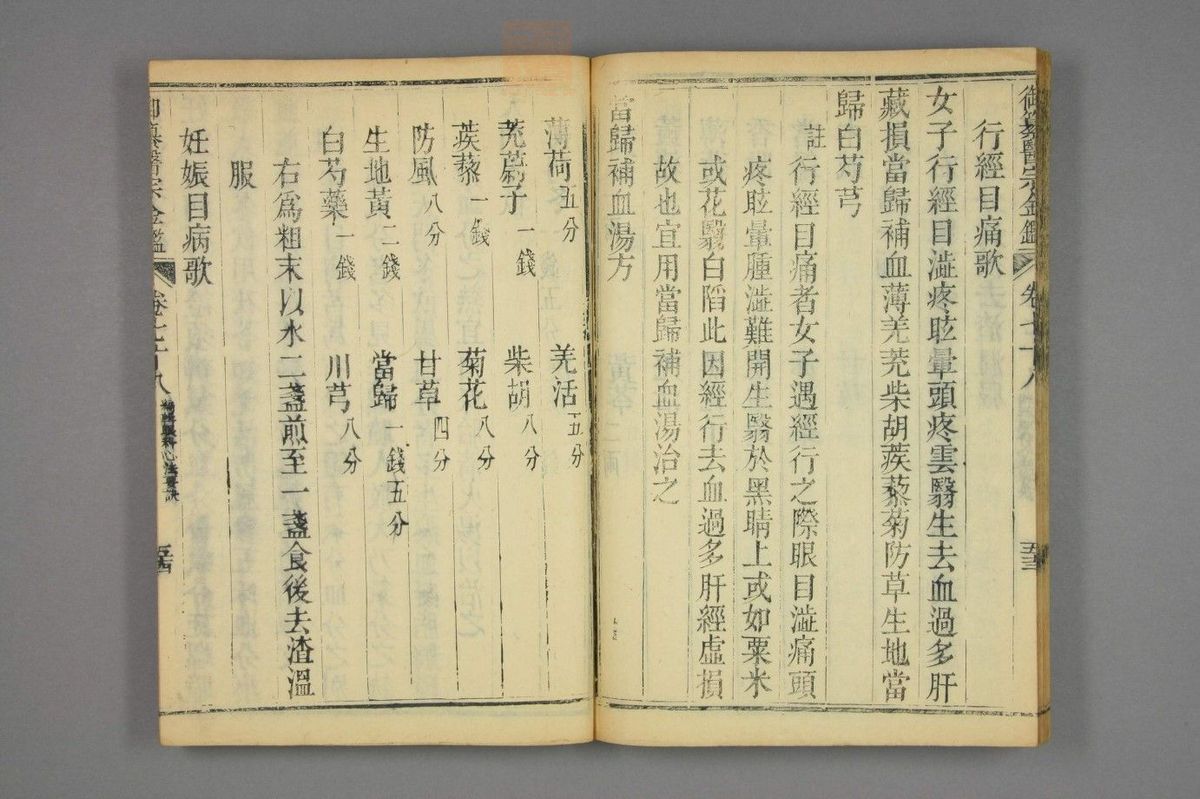 御纂醫宗金鑑 卷七十八 五十三
行經目痛歌
女子行經目澁疼眩暈頭疼雲翳生去血過多肝
藏損當歸補血薄羗茺柴胡蒺藜菊防草生地當
歸白芍芎
註行經目痛者女子遇經行之際眼目澁痛頭
疼眩暈腫澁難開生翳於黑睛上或如粟米
或花翳白陷此因經行去血過多肝經虛損
故也宜用當歸補血湯治之
當歸補血湯方
薄荷五分 羗活五分
茺蔚子一錢 柴胡八分
蒺藜一錢 菊花八分
防風八分 甘草四分
生地黃二錢 當歸一錢五分
白芍藥一錢 川芎八分
右爲粗末以水二盞煎至一盞食後去渣溫
服
妊娠目病歌
御纂醫宗金鑑 卷七十八 編輯眼科心法要訣 五十四